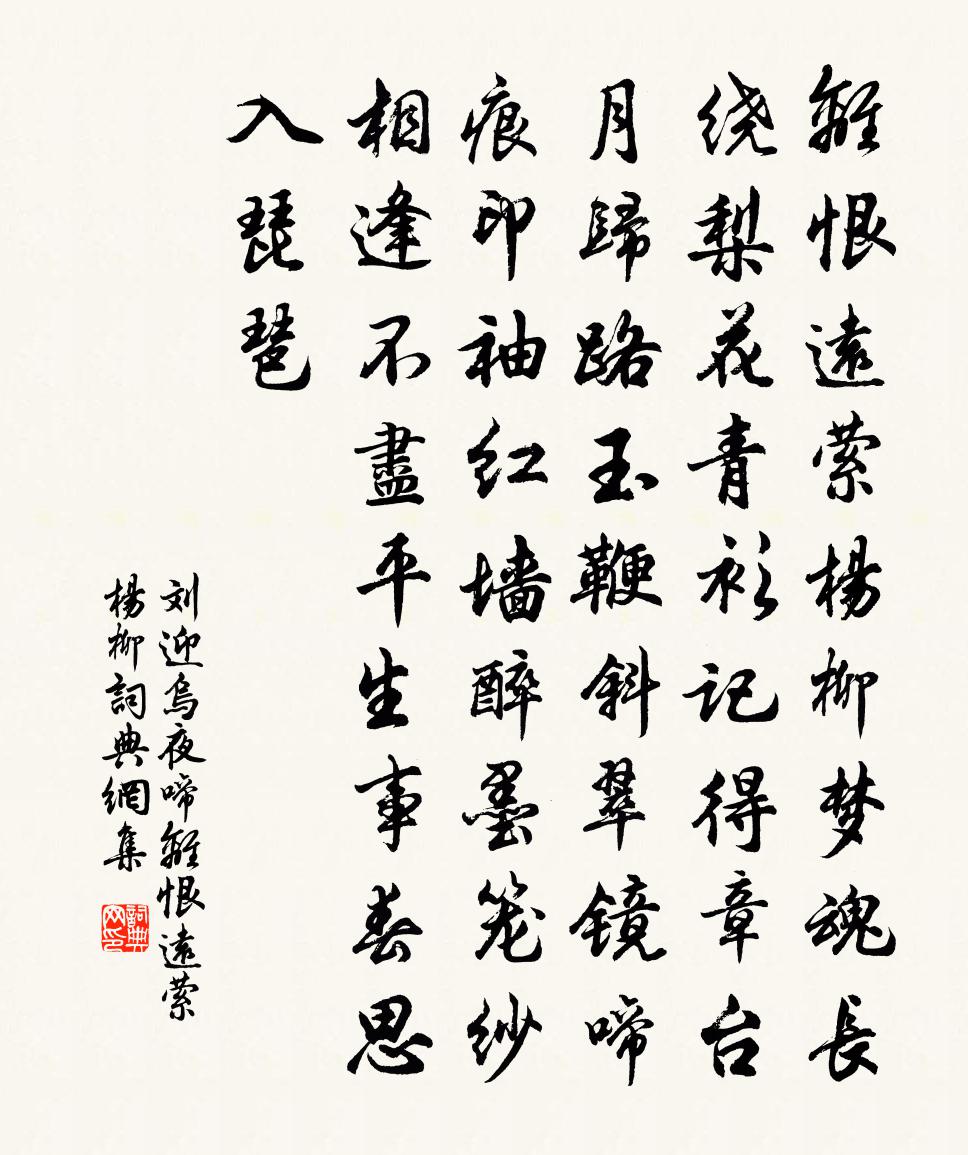 離恨遠萦楊柳梦魂長
绕梨花青衫记得章台
月歸路玉鞭斜翠镜啼
痕印袖红墙醉墨笼纱
相逢不盡平生事春思
入琵琶
刘迎烏夜啼離恨遠萦
楊柳詞典網集
詞典网印